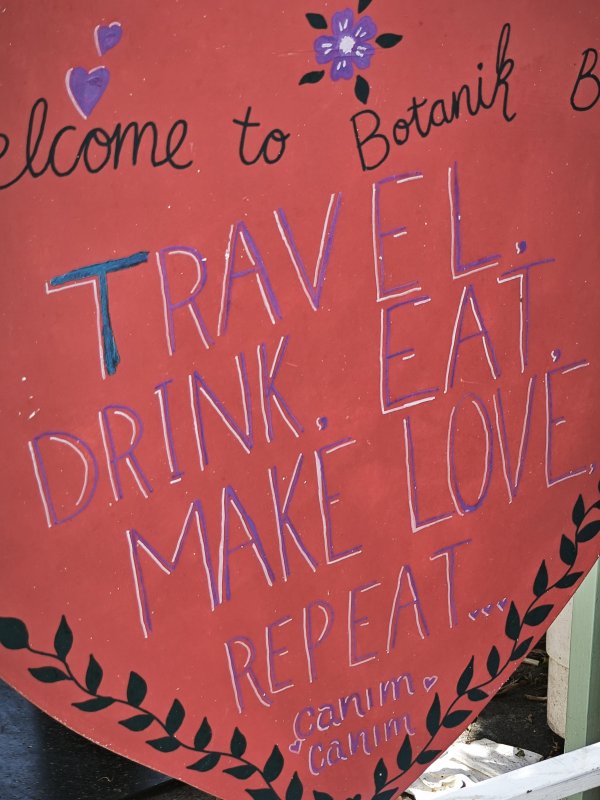 elcome to Botanik B
TRAVEL,
DRINK, EAT,
MAKE LOVE,
REPEAT...
canım
canim